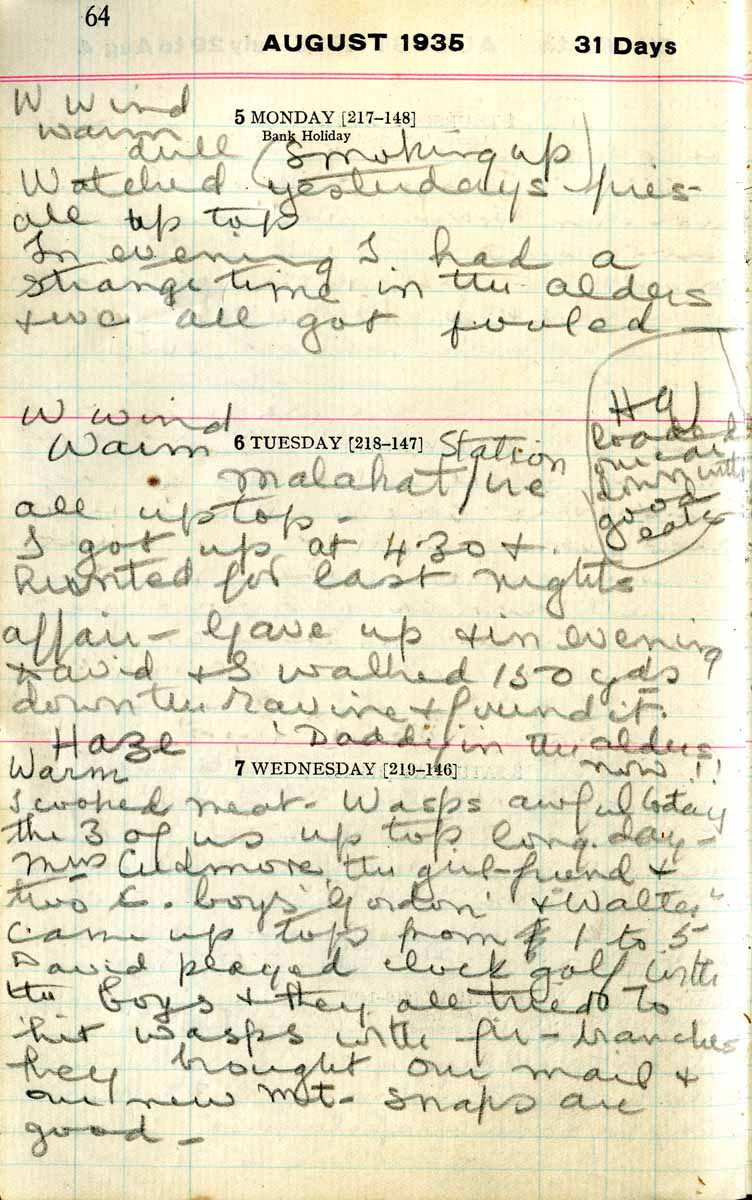 64
AUGUST 1935 31 Days
W Wind
5 MONDAY [217–148]
warm
Bank Holiday
dull (Smoking up)
Watched yesterdays fires
all up top
In evening I had a
strange time in the alders
+ we all got fooled —
W Wind
Warm 6 TUESDAY [218–147] Station
Malahat / we
HG
loaded
our car
down with
good
eats
all up top –
I got up at 4 30 +
hunted for last nights
affair – Gave up + in evening
David + I walked 150 yds
down the ravine + found it.
Haze 'Daddy in the alders
now !!
Warm 7 WEDNESDAY [219–146]
I cooked meat – Wasps awful today
the 3 of us up top long day –
Mrs Cudmore, the girl-friend +
two C. boys 'Gordon' + "Walter"
came up top from 1 to 5
David played clock golf with
the boys + they all tried to
hit wasps with fir-branches
they brought our mail +
our new Mt– snaps are
good –